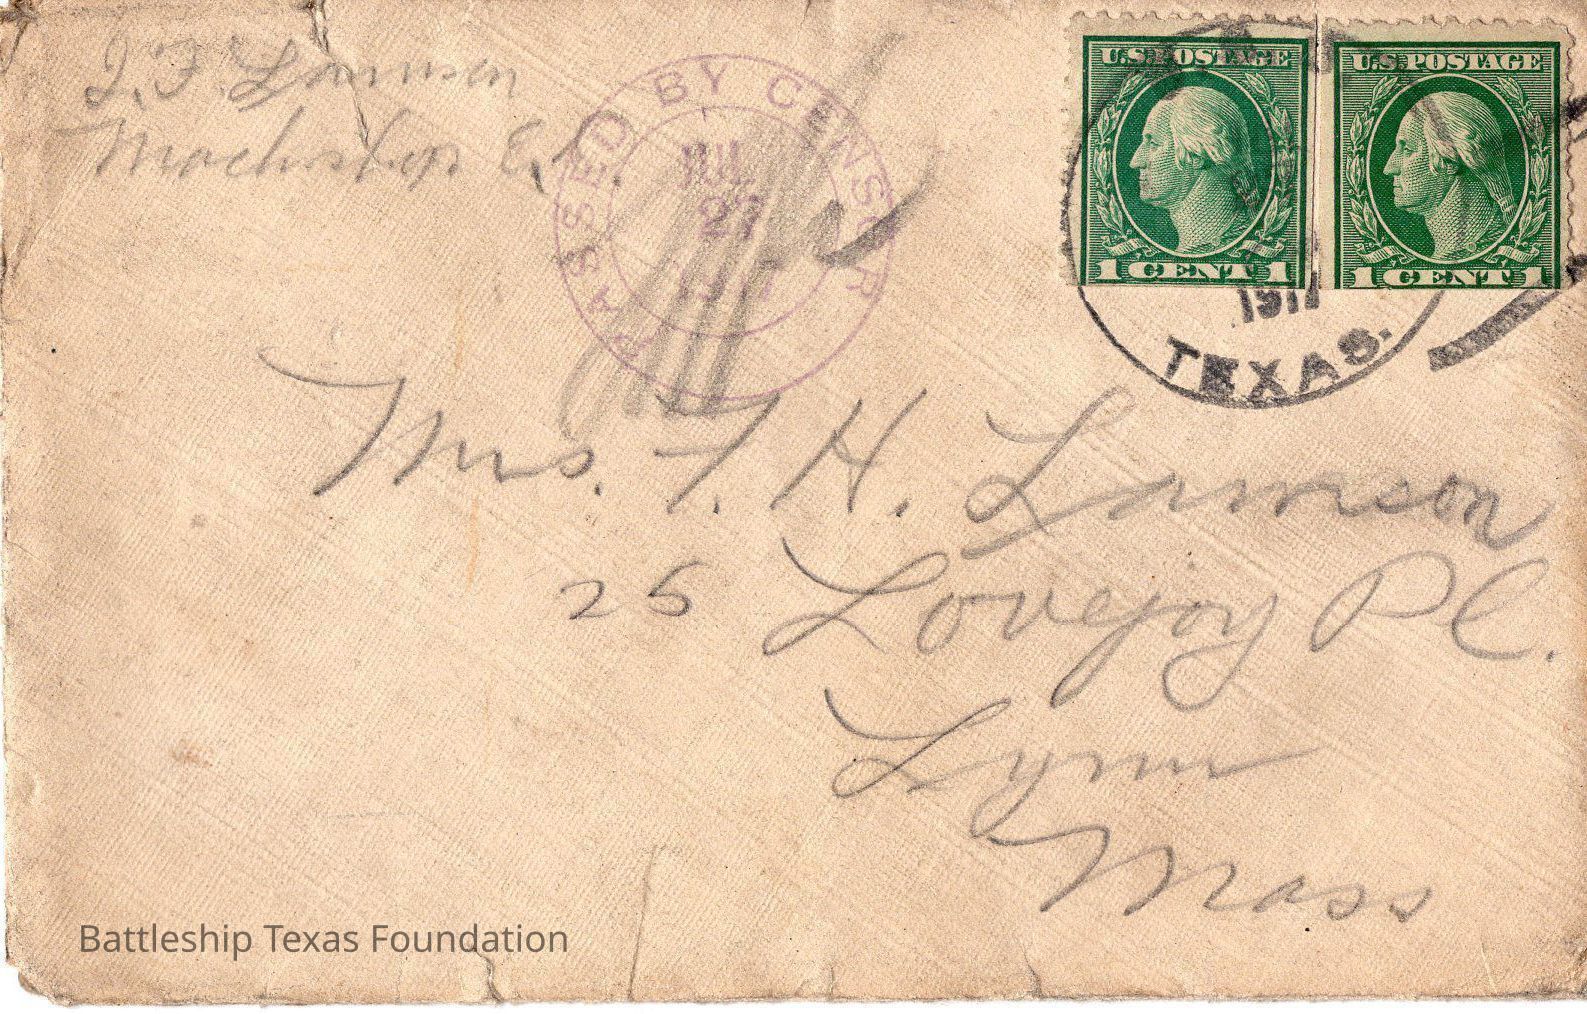 J. F. Lamson
PASSED BY CENSOR
JUL
27
U.S. POSTAGE
1 CENT 1
U.S. POSTAGE
1 CENT 1
191
TEXAS.
Mrs. F. H. Lamson
25 Lovejoy Pl.
Lynn
Mass
Battleship Texas Foundation